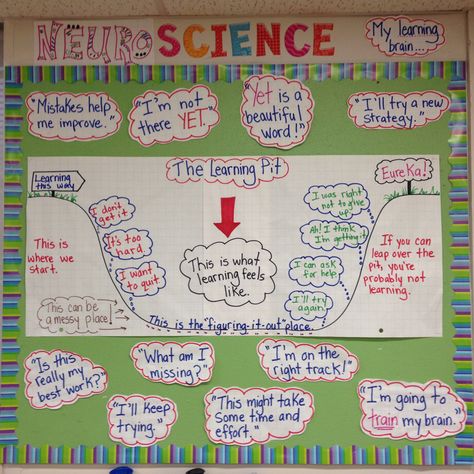 NEUROSCIENCE
My learning
brain...
"Mistakes help
me improve."
"I'm not
there YET."
"Yet is a
beautiful
word!"
"I'll try a new
strategy."
The Learning Pit
Learning
this way
EureKa!
I don't
get it
It's too
hard.
I want
to quit.
This is
where we
start.
This can be
a messy place!
This is what
learning feels
like.
I was right
not to give
up!
Ah! I think
I'm getting it.
I can ask
for help
I'll try
again.
If you can
leap over the
pit, you're
probably not
learning.
This is the "figuring-it-out" place.
"Is this
really my
best work?"
"What am I
missing?"
"I'm on the
right track!"
"I'll keep
trying."
"This might take
some time and
effort."
"I'm going to
train my brain."